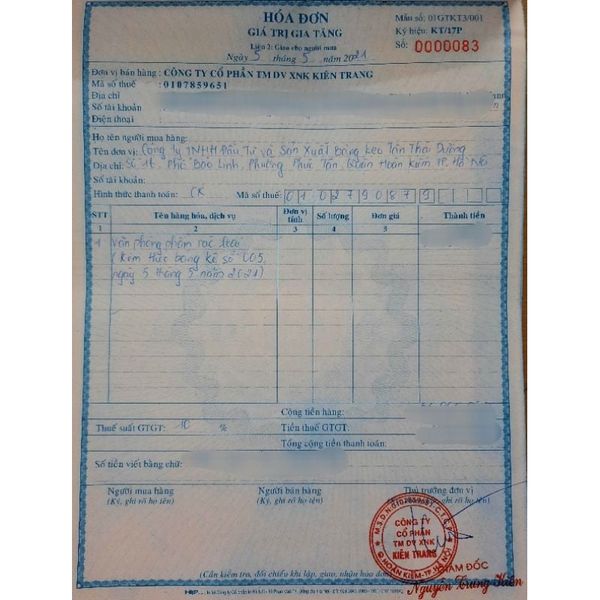 HÓA ĐƠN
GIÁ TRỊ GIA TĂNG
Liên 2: Giao cho người mua
Ngày 5 tháng 5 năm 2021
Mẫu số: 01GTKT3/001
Ký hiệu: KT/17P
Số: 0000083
Đơn vị bán hàng: CÔNG TY CỔ PHẦN TM DV XNK KIÊN TRANG
Mã số thuế : 0107859651
Địa chỉ
Số tài khoản
Điện thoại
Họ tên người mua hàng:
Tên đơn vị: Công ty TNHH Đầu Tư và Sản Xuất Băng Keo Tân Thái Dương
Địa chỉ: Số 16 Phố Bảo Linh, Phường Phúc Tân, Quận Hoàn Kiếm TP. Hà Nội
Số tài khoản:
Hình thức thanh toán: CK Mã số thuế: 0102790879
STT Tên hàng hóa, dịch vụ Đơn vị tính Số lượng Đơn giá Thành tiền
1 2 3 4 5
1 Văn phòng phẩm các loại
(Kèm theo bảng kê số 005
ngày 5 tháng 5 năm 2021)
Cộng tiền hàng:
Thuế suất GTGT: 10 % Tiền thuế GTGT:
Tổng cộng tiền thanh toán:
Số tiền viết bằng chữ:
Người mua hàng Người bán hàng Thủ trưởng đơn vị
(Ký, ghi rõ họ tên) (Ký, ghi rõ họ tên) (Ký, ghi rõ họ tên)
M.S.D.N:0107859651-C.T.C.P
CÔNG TY
CỔ PHẦN
TM DV XNK
KIÊN TRANG
Q.HOÀN KIẾM-TP.HÀ NỘI
GIÁM ĐỐC
Nguyễn Trung Kiên
(Cần kiểm tra, đối chiếu khi lập, giao, nhận hóa đơn)